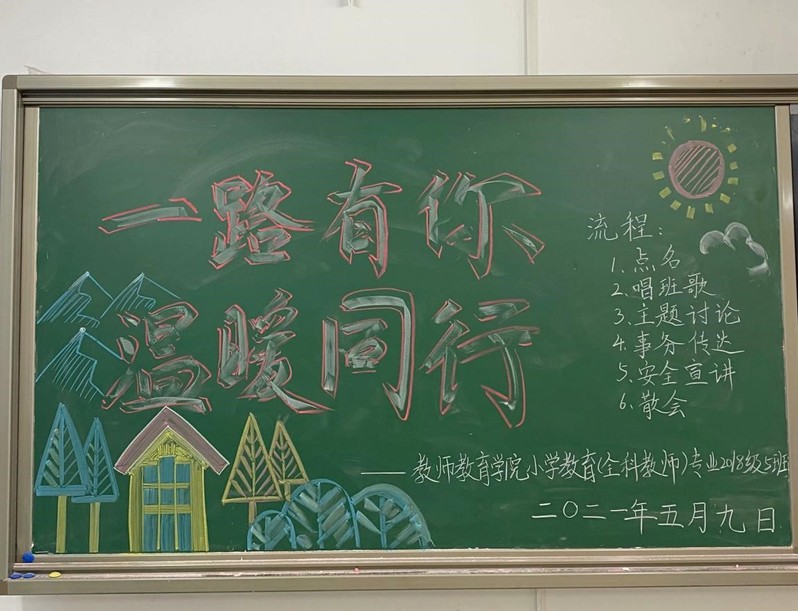 一路有你
温暖同行
流程：
1、点名
2、唱班歌
3、主题讨论
4、事务传达
5、安全宣讲
6、散会
——教师教育学院小学教育(全科教师)专业2018级5班
二〇二一年五月九日